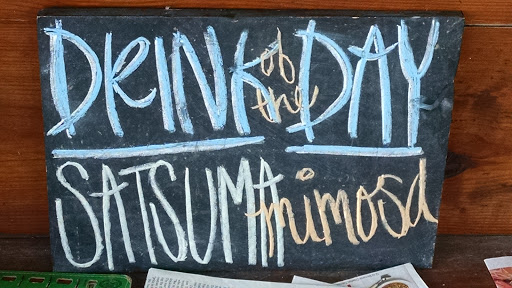 DRINK of the DAY
SATSUMA mimosa